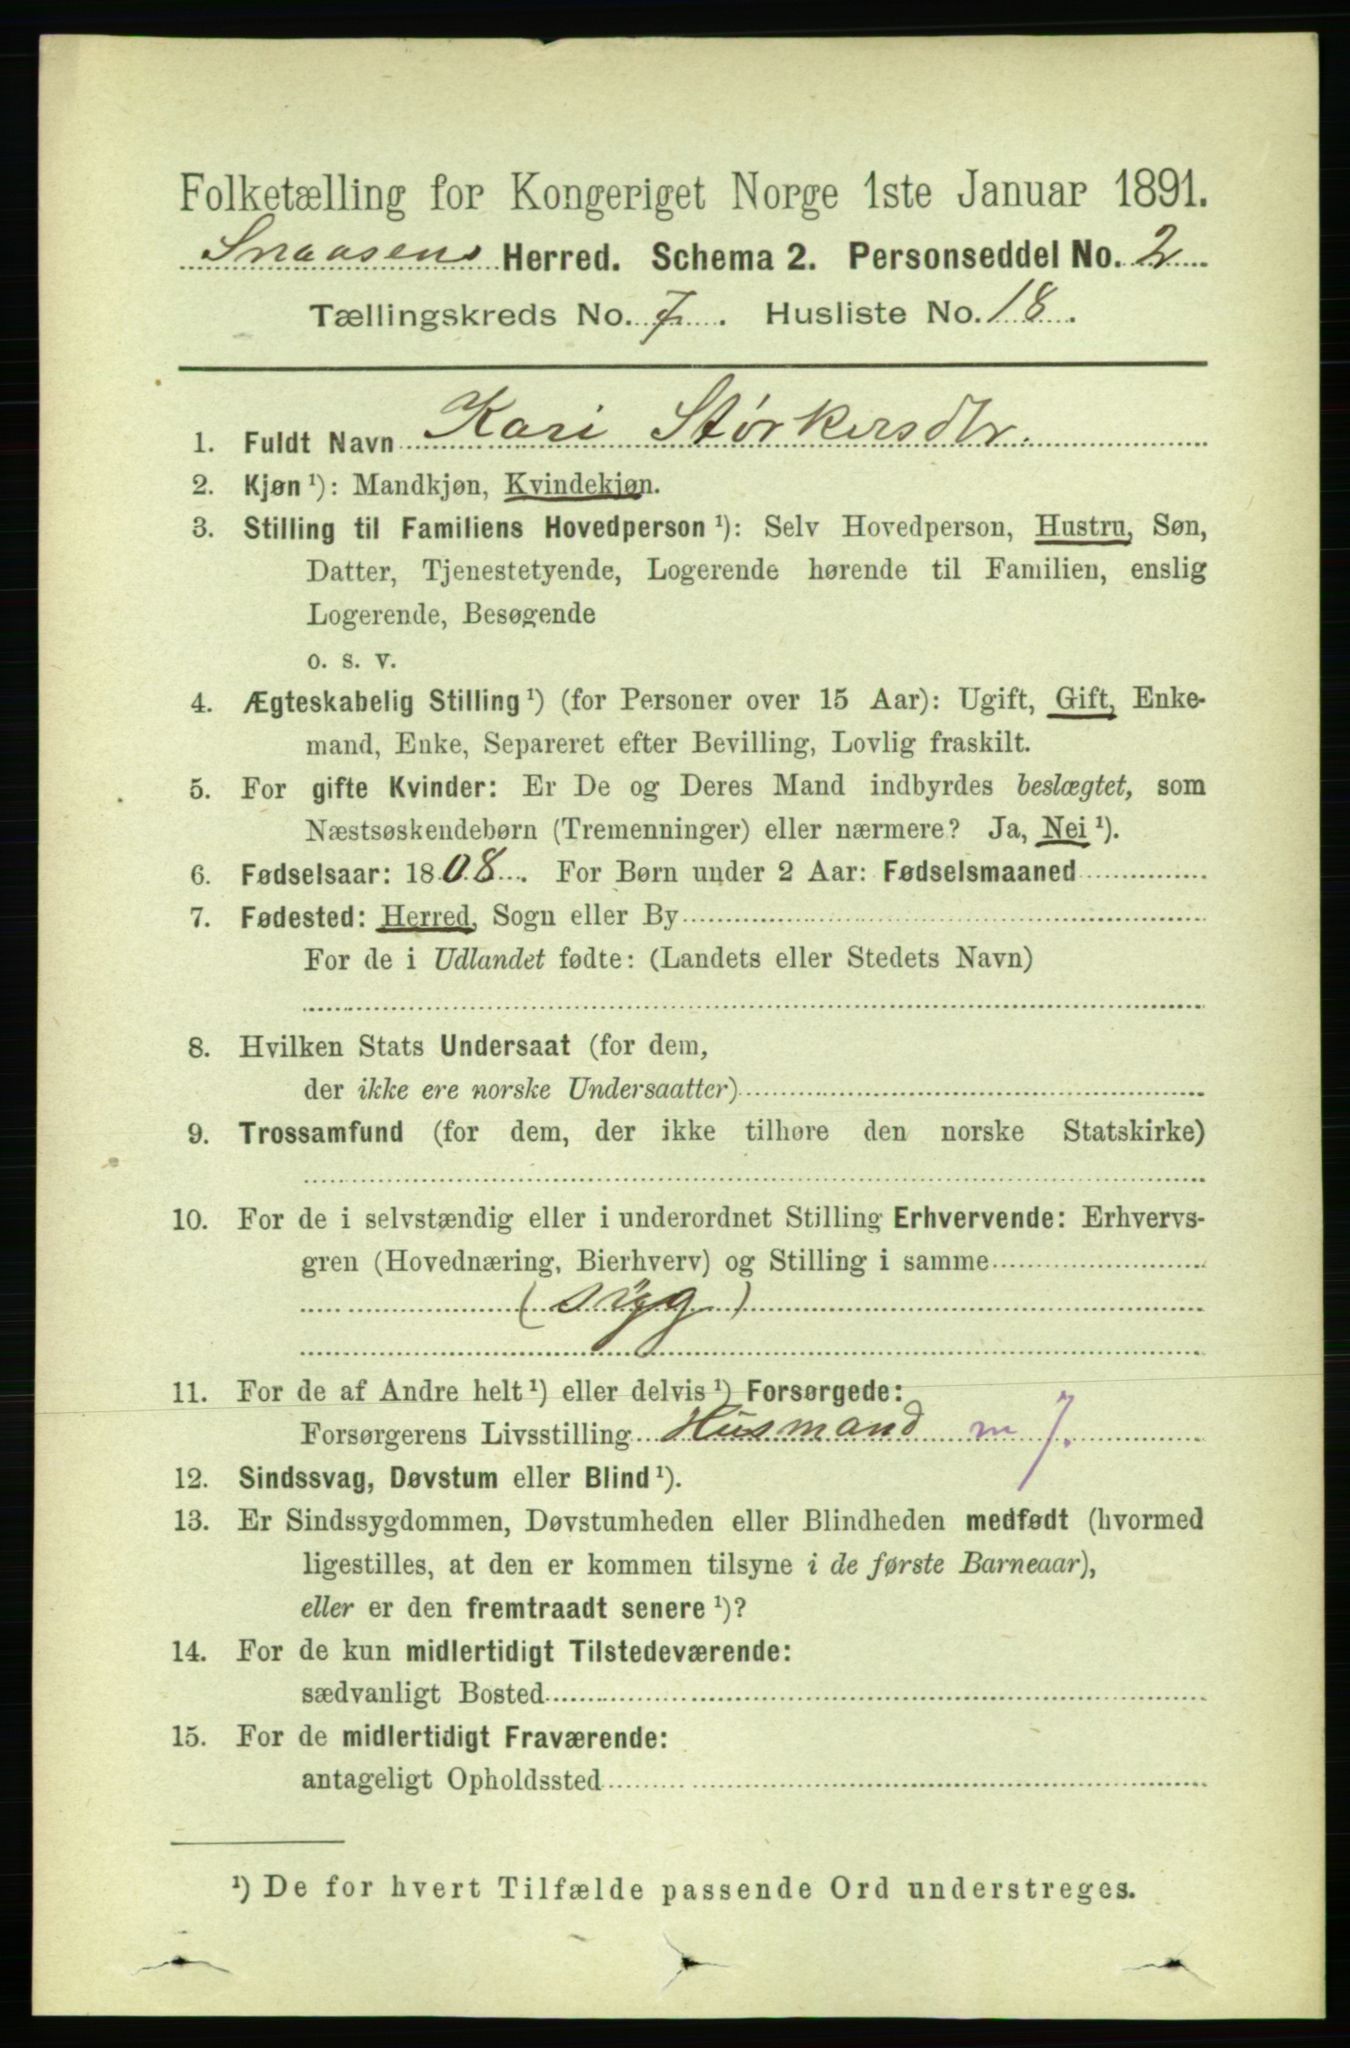 Folketælling for Kongeriget Norge 1ste Januar 1891.
Snaasens Herred. Schema 2. Personseddel No. 2
Tællingskreds No. 7. Husliste No. 18.
1. Fuldt Navn Kari Størkersdtr.
2. Kjøn ¹): Mandkjøn, Kvindekjøn.
3. Stilling til Familiens Hovedperson ¹): Selv Hovedperson, Hustru, Søn,
Datter, Tjenestetyende, Logerende hørende til Familien, enslig
Logerende, Besøgende
o. s. v.
4. Ægteskabelig Stilling ¹) (for Personer over 15 Aar): Ugift, Gift, Enke-
mand, Enke, Separeret efter Bevilling, Lovlig fraskilt.
5. For gifte Kvinder: Er De og Deres Mand indbyrdes beslægtet, som
Næstsøskendebørn (Tremenninger) eller nærmere? Ja, Nei ¹).
6. Fødselsaar: 1808. For Børn under 2 Aar: Fødselsmaaned
7. Fødested: Herred, Sogn eller By
For de i Udlandet fødte: (Landets eller Stedets Navn)
8. Hvilken Stats Undersaat (for dem,
der ikke ere norske Undersaatter)
9. Trossamfund (for dem, der ikke tilhøre den norske Statskirke)
10. For de i selvstændig eller i underordnet Stilling Erhvervende: Erhvervs-
gren (Hovednæring, Bierhverv) og Stilling i samme
(syg)
11. For de af Andre helt ¹) eller delvis ¹) Forsørgede:
Forsørgerens Livsstilling Husmand m J.
12. Sindssvag, Døvstum eller Blind ¹).
13. Er Sindssygdommen, Døvstumheden eller Blindheden medfødt (hvormed
ligestilles, at den er kommen tilsyne i de første Barneaar),
eller er den fremtraadt senere ¹)?
14. For de kun midlertidigt Tilstedeværende:
sædvanligt Bosted
15. For de midlertidigt Fraværende:
antageligt Opholdssted
¹) De for hvert Tilfælde passende Ord understreges.